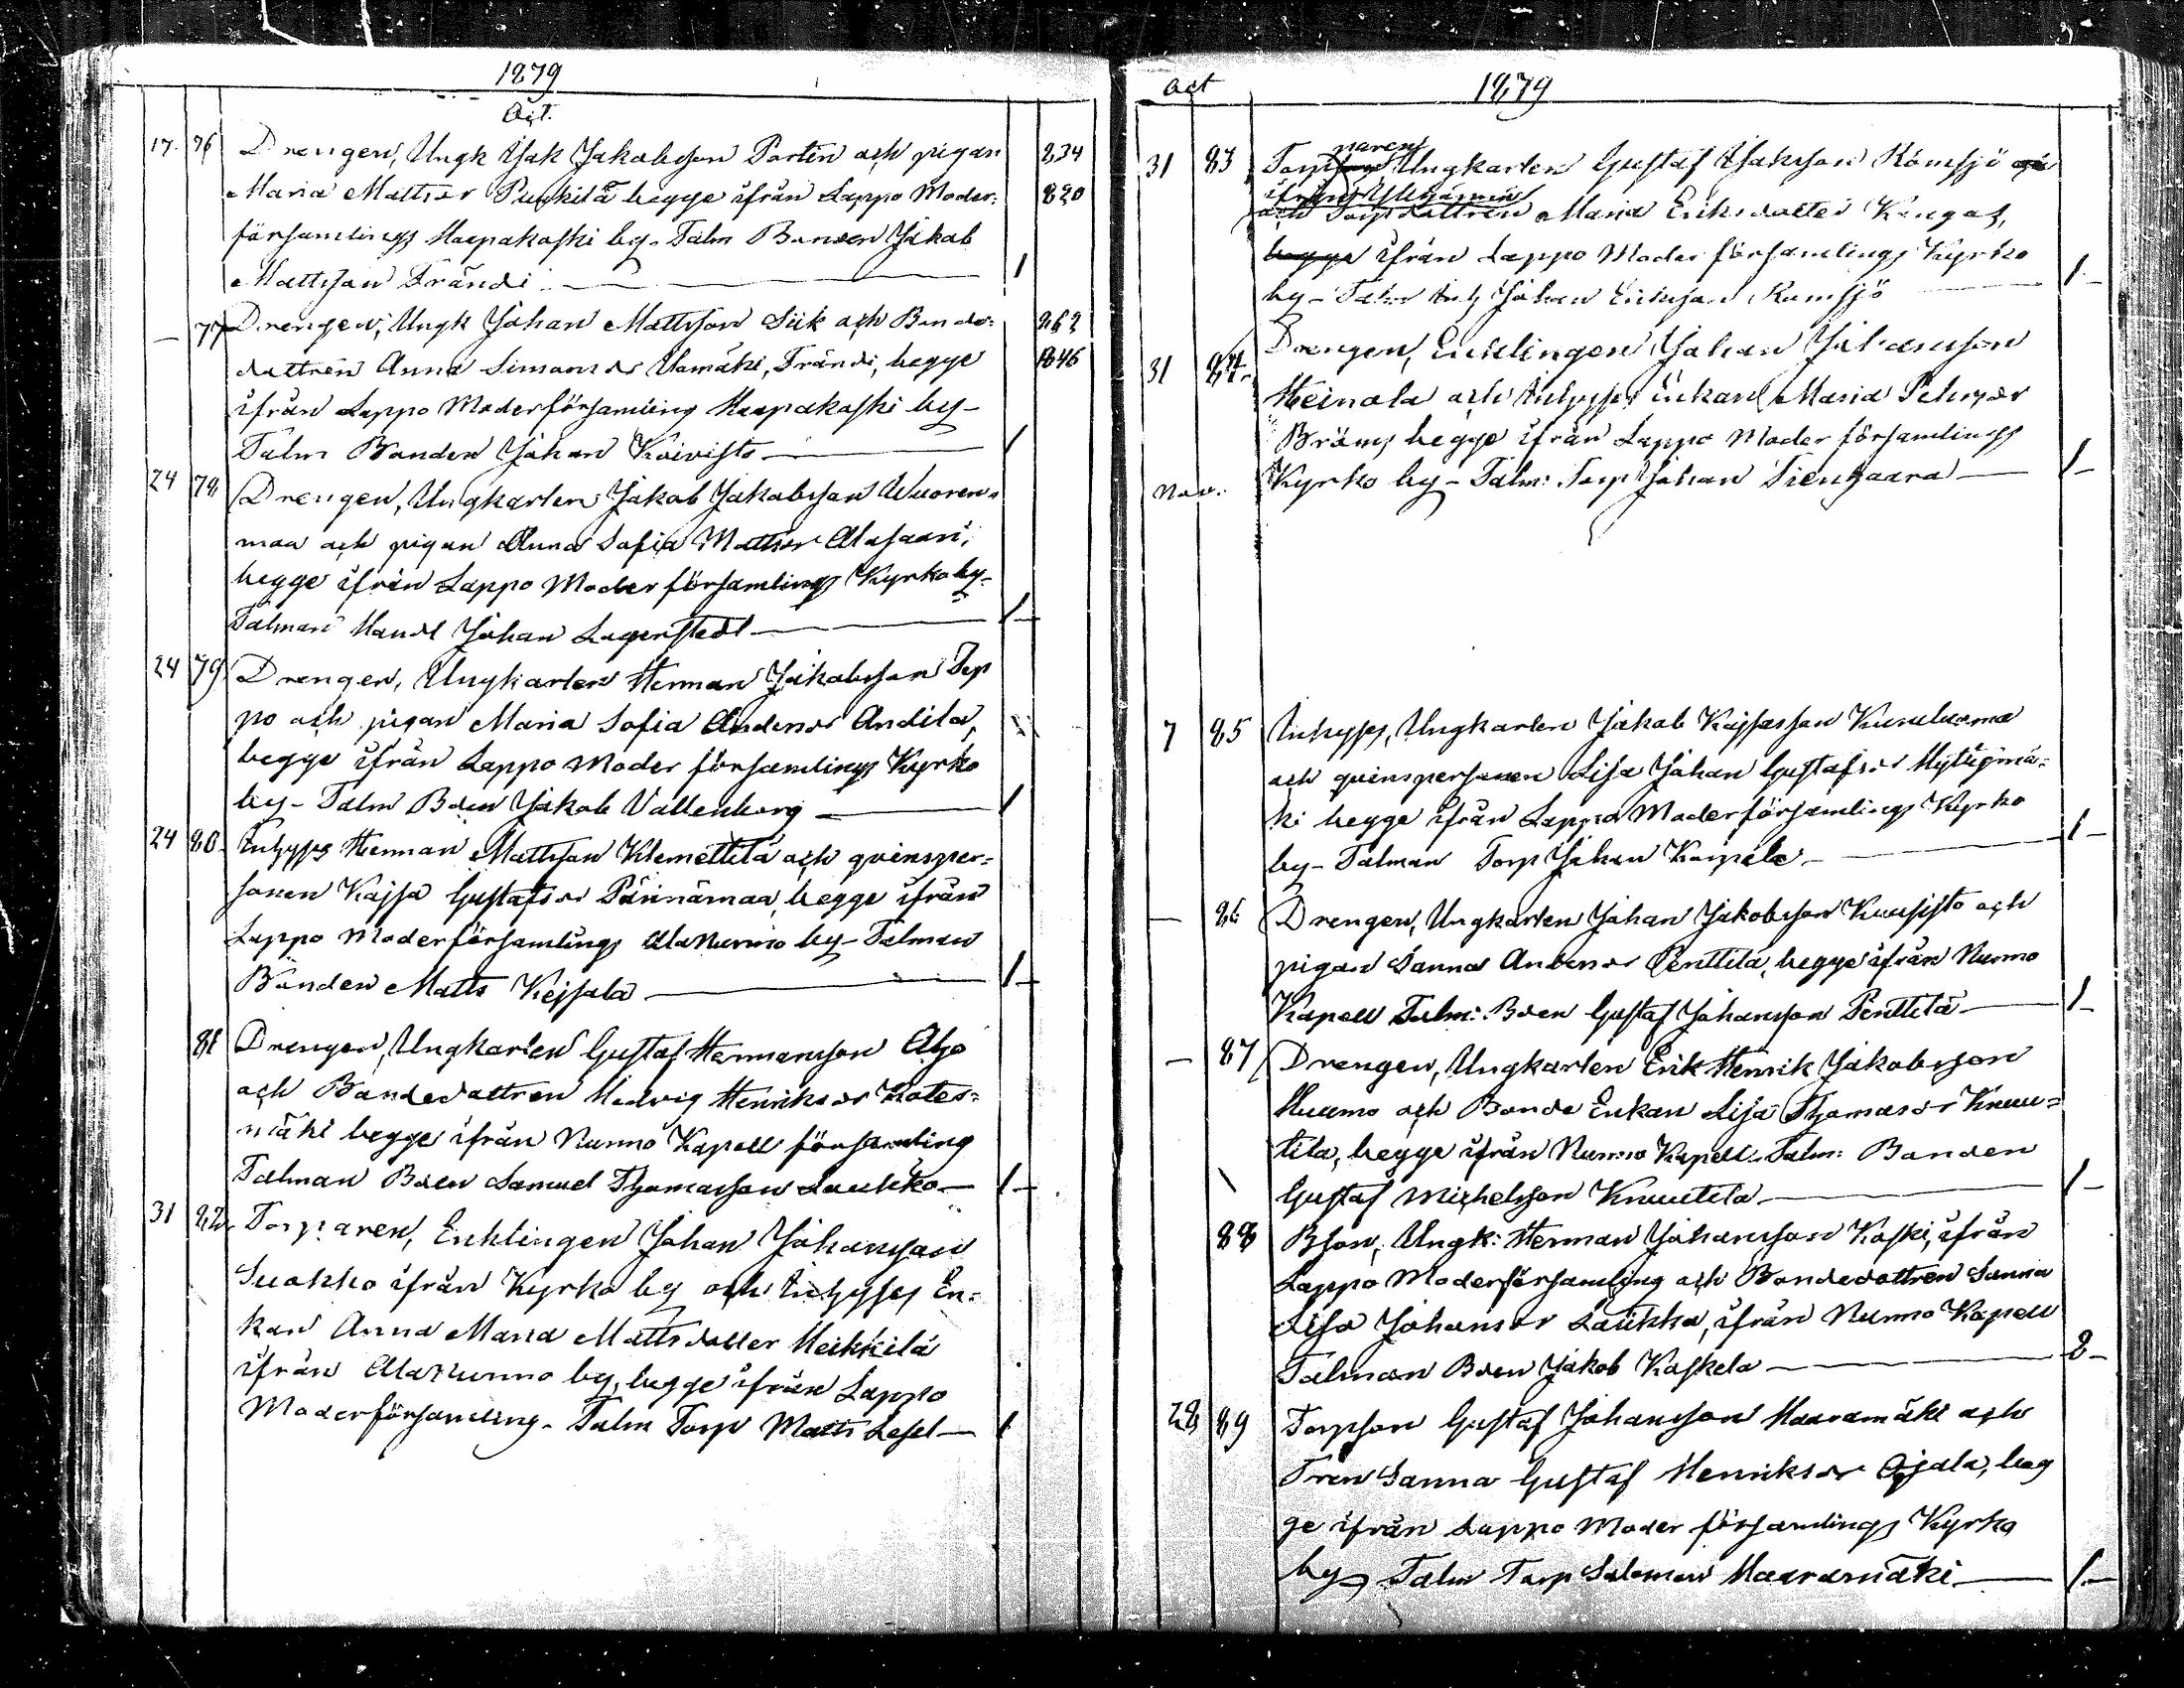 1879
Oct.
17. 76 Drengen, Ungk Isak Jakobsson Portin och pigan 834
Maria Mattsdr begge ifrån Lappo Moder= 820
församlings Haapakoski by. Talm Bonden Jakob
Mattsson Frändi 1
77 Drengen, Ungk Johan Mattsson Siik och Bonde= 862
dattren Anna Simonsdr Uamäki, Frändi, begge 1846
ifrån Lappo Moderförsamling Haapakoski by-
Talm Bonden Johan Koivisto 1
24 78 Drengen, Ungkarlen Jakob Jakobsson Wuoren=
maa och pigan Anna Sofia Mattsdr Alasaari,
begge ifrån Lappo Moderförsamlings Kyrkoby-
Talman Handl Johan Lagerstedt 1
24 79 Drengen, Ungkarlen Herman Jakobsson Tep
po och pigan Maria Sofia Andersdr Andila,
begge ifrån Lappo Moder församlings Kyrko
by- Talm Boden Jakob Vallenberg 1
24 80 Inhyses Herman Mattsson Klemettilä och qvinsper=
sonen Kajsa Gustafsdr Pännämaa, begge ifrån
Lappo Moderförsamlings Alanurmo by- Talman
Bonden Matts Kejsala 1
81 Drengen, Ungkarlen Gustaf Hermansson Aljo
och Bondedattren Hedvig Henriksdr Kotes=
mäki begge ifrån Nurmo Kapell församling
Talman Boden Samuel Thomasson Laukko 1
31 82 Torparen, Enklingen Johan Johansson
Suokko ifrån Kyrko by och Inhyses En=
kan Anna Maria Mattsdotter Heikkilä
ifrån Alanurmo by, begge ifrån Lappo
Moderförsamling. Talm Torp Matts Lesel 1
Oct 1879
31 83 Torparen Ungkarlen Gustaf Isaksson Römsjö
ifrån Ylihärmä
och Torpdattren Maria Eriksdotter Kangas,
begge ifrån Lappo Moder församlings Kyrko
by- Talm Inh Johan Eriksson Romsjö 1
31 84. Drengen, Enklingen Johan Johansson
Heinola och Inhyses Enkan Maria
Bröms begge ifrån Lappo Moder församlings
Nov. Kyrko by- Talm: Torp Johan Tiensaara 1
7 85 Inhyses, Ungkarlen Jakob Kajsasson
och qvinspersonen Lisa Johan Gustafsdr
ki begge ifrån Lappo Moderförsamlings Kyrko
by- Talman Torp Johan Karpela 1
86 Drengen, Ungkarlen Johan Jakobsson Kuusisto och
pigan Sanna Andersdr Penttilä, begge ifrån Nurmo
Kapell Talm: Boden Gustaf Johansson Penttilä 1
87 Drengen, Ungkarlen Erik Henrik Jakobsson
Huumo och Bonde Enkan Lisa Thomasdr Knuu=
tila, begge ifrån Nurmo Kapell. Talm: Bonden
Gustaf Michelsson Knuutila 1
88 Bson, Ungk: Herman Johansson Koski, ifrån
Lappo Moderförsamling och Bondedattren Sanna
Lisa Johansdr Laukko, ifrån Nurmo Kapell
Talman Boden Jakob Koskela 2
28 89 Torpson Gustaf Johansson Haaramäki och
Tren Sanna Gustaf Henriksdr Ojala, beg
ge ifrån Lappo Moder församlings Kyrko
by Talm Torp Salomon Haaramäki 1